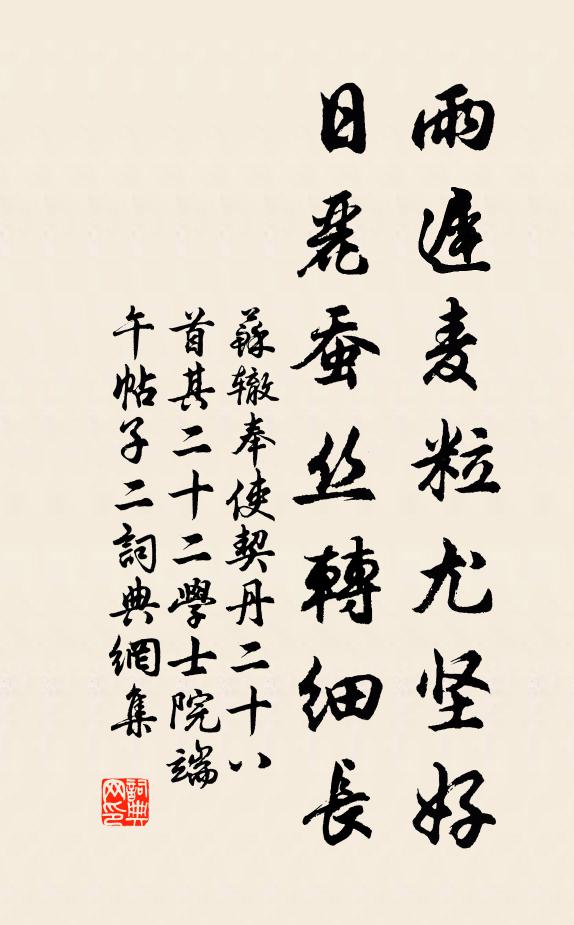 雨遲麦粒尤坚好
日麗蚕丝轉细長
蘇辙奉使契丹二十八
首其二十二學士院端
午帖子二詞典網集
詞典网印